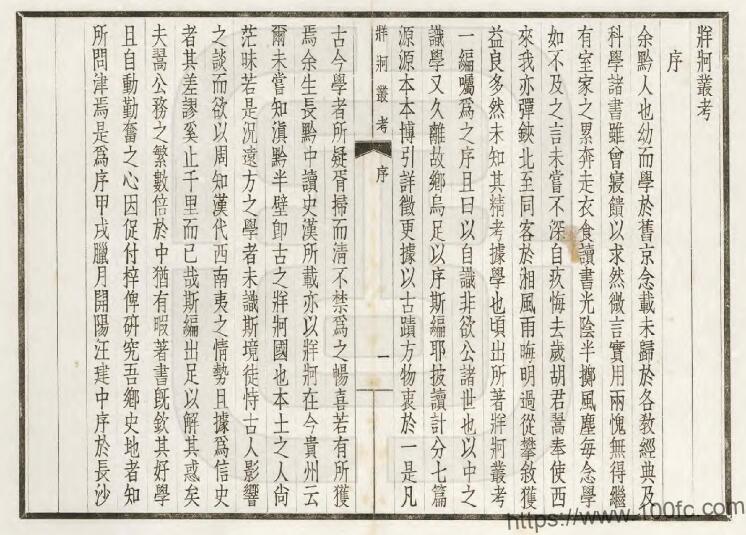 牂牁叢考
序
余黔人也幼而學於舊京念載未歸於各教經典及
科學諸書雖曾寢饋以求然微言實用兩愧無得繼
有室家之累奔走衣食讀書光陰半擲風塵每念學
如不及之言未嘗不深自疚悔去歲胡君翯奉使西
來我亦彈鋏北至同客於湘風雨晦明過從攀敘獲
益良多然未知其精考據學也頃出所著牂牁叢考
一編囑爲之序且曰以自識非欲公諸世也以中之
識學又久離故鄉烏足以序斯編耶披讀計分七篇
源源本本博引詳徵更據以古蹟方物衷於一是凡
牂牁叢考
序
一
古今學者所疑胥掃而清不禁爲之暢喜若有所獲
焉余生長黔中讀史漢所載亦以牂牁在今貴州云
爾未嘗知滇黔半壁卽古之牂牁國也本土之人尙
茫昧若是況遠方之學者未識斯境徒恃古人影響
之談而欲以周知漢代西南夷之情勢且據爲信史
者其差謬奚止千里而已哉斯編出足以解其惑矣
夫翯公務之繁數倍於中猶有暇著書旣欽其好學
且自動勤奮之心因促付梓俾研究吾鄉史地者知
所問津焉是爲序甲戌臘月開陽汪建中序於長沙
https://www.100fc.com